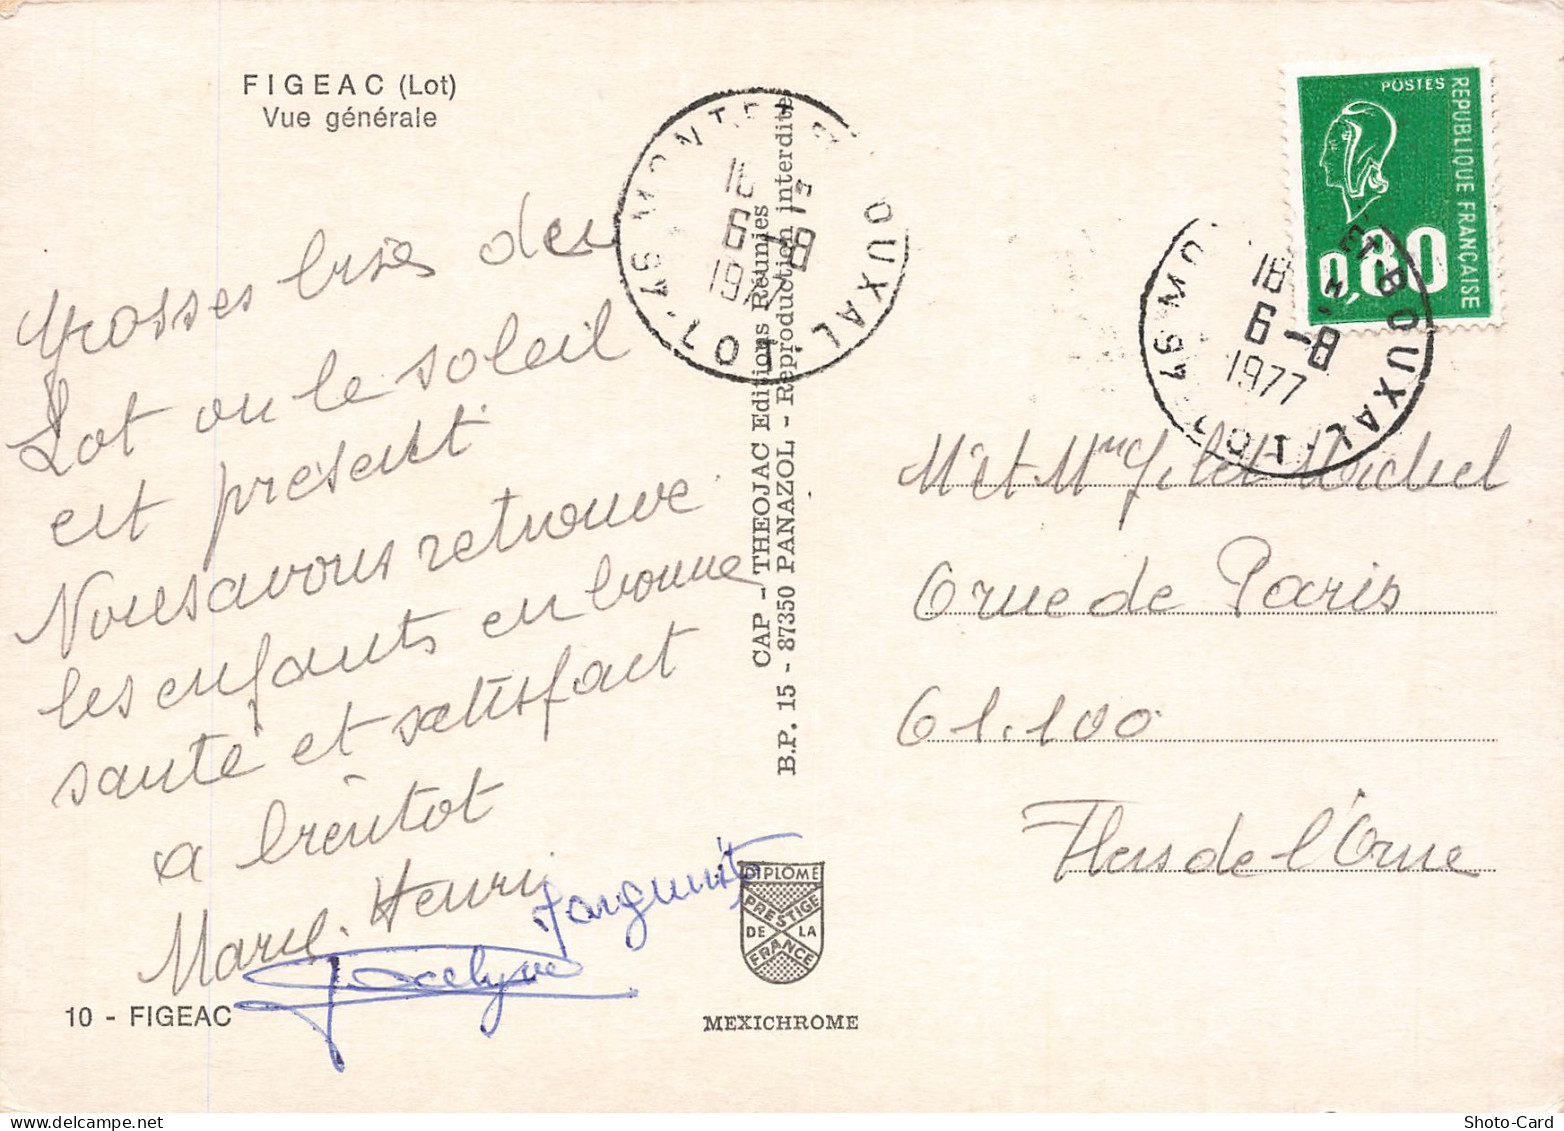 FIGEAC (Lot)
Vue générale
Grosses bises du
Lot ou le soleil
est présent
Nous avons retrouvé
les enfants en bonne
santé et satisfait
a bientot
Marcel. Henri
Marguerite
Jocelyne
10 - FIGEAC
CAP - THEOJAC Editions Réunies
B.P. 15 - 87350 PANAZOL - Reproduction interdite
DIPLOME
PRESTIGE
DE LA
FRANCE
MEXICHROME
POSTES
REPUBLIQUE FRANÇAISE
0,80
46 MONTET-BOUXAL LOT
16 H
6-8
1977
46 MONTET-BOUXAL LOT
18 H
6-8
1977
Mr et Mme Gilet Michel
6 rue de Paris
61.100
Flers de l'Orne
Shoto-Card